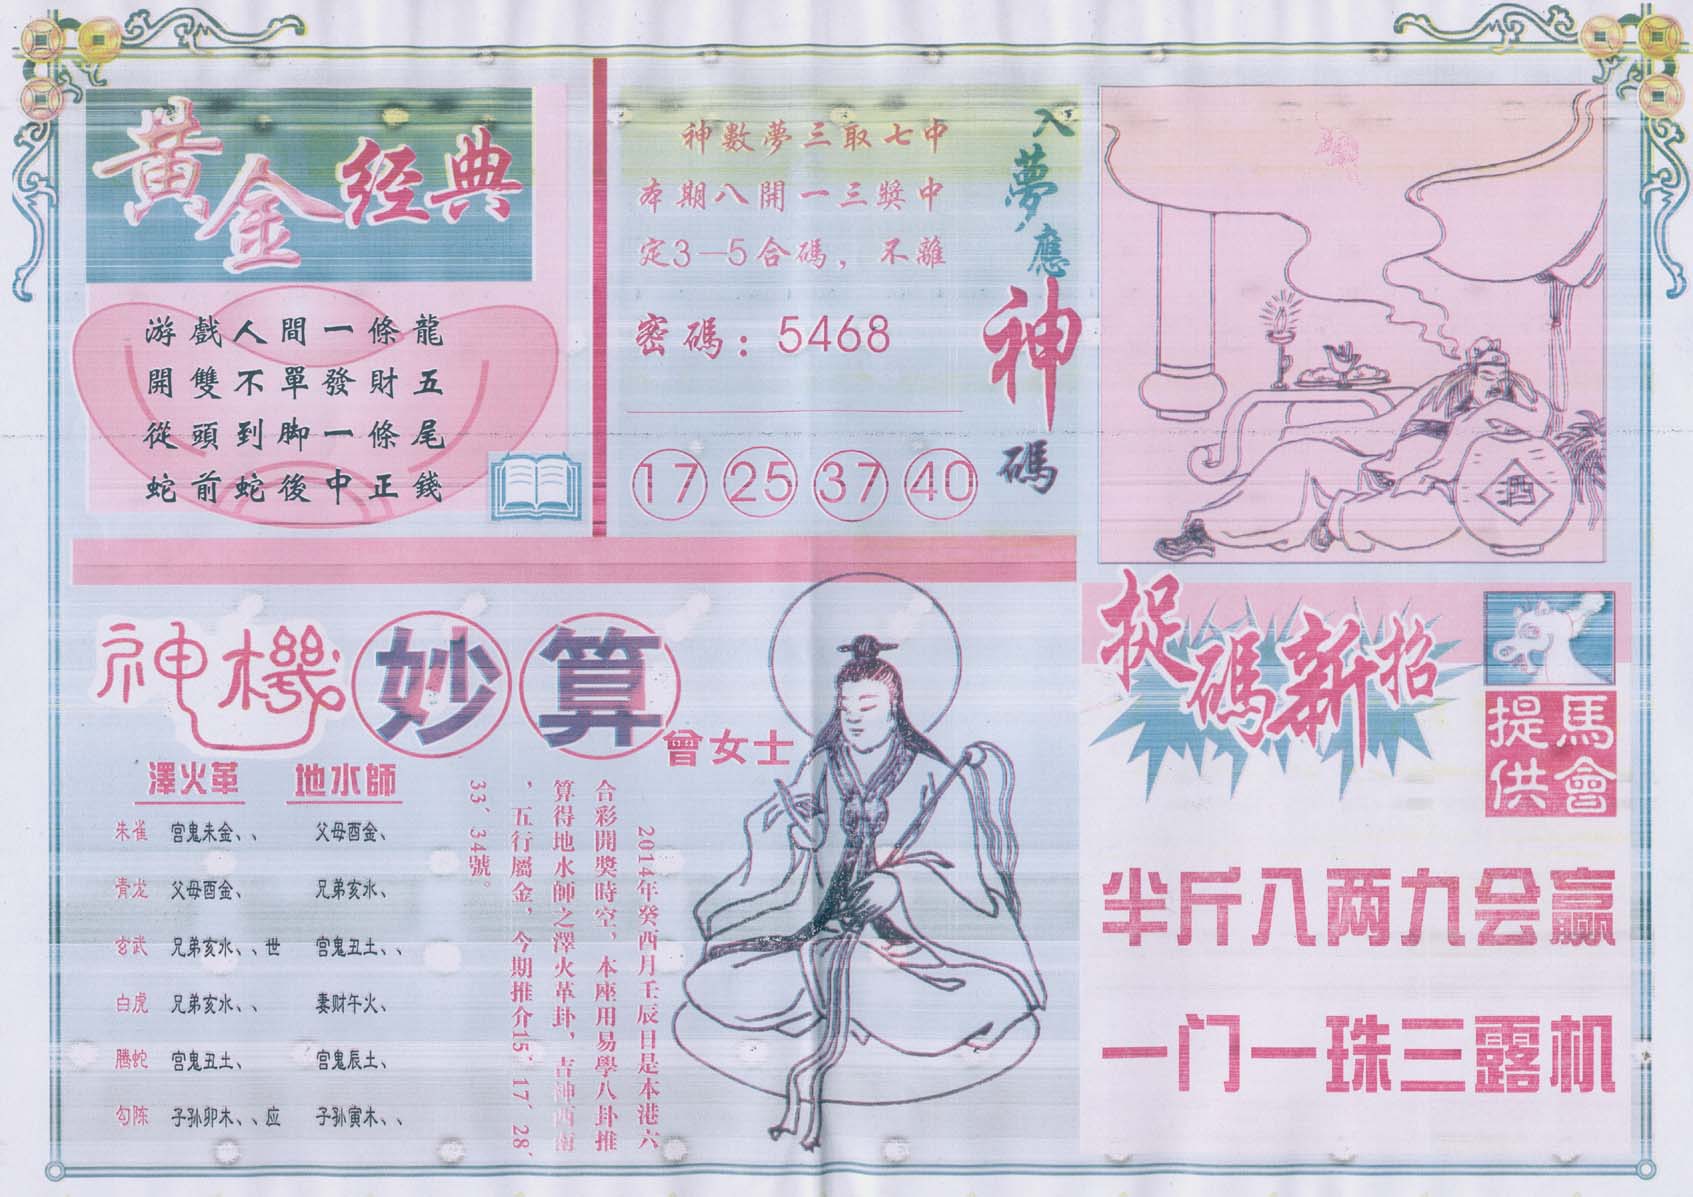 黄金经典
游戲人間一條龍
開雙不單發財五
從頭到脚一條尾
蛇前蛇後中正錢
神數夢三取七中
本期八開一三獎中
定3—5合碼，不離
密碼：5468
17 25 37 40
入夢應神碼
酒
神機妙算
曾女士
澤火革 地水師
朱雀 宫鬼未金、、 父母酉金、
青龙 父母酉金、 兄弟亥水、
玄武 兄弟亥水、、世 宫鬼丑土、、
白虎 兄弟亥水、、 妻财午火、
腾蛇 宫鬼丑土、 宫鬼辰土、
勾陈 子孙卯木、、应 子孙寅木、、
2014年癸酉月壬辰日是本港六
合彩開獎時空，本座用易學八卦推
算得地水師之澤火革卦，吉神西南
，五行屬金，今期推介15、17、28、
33、34號。
捉碼新招
馬會
提供
半斤八两九会赢
一门一珠三露机